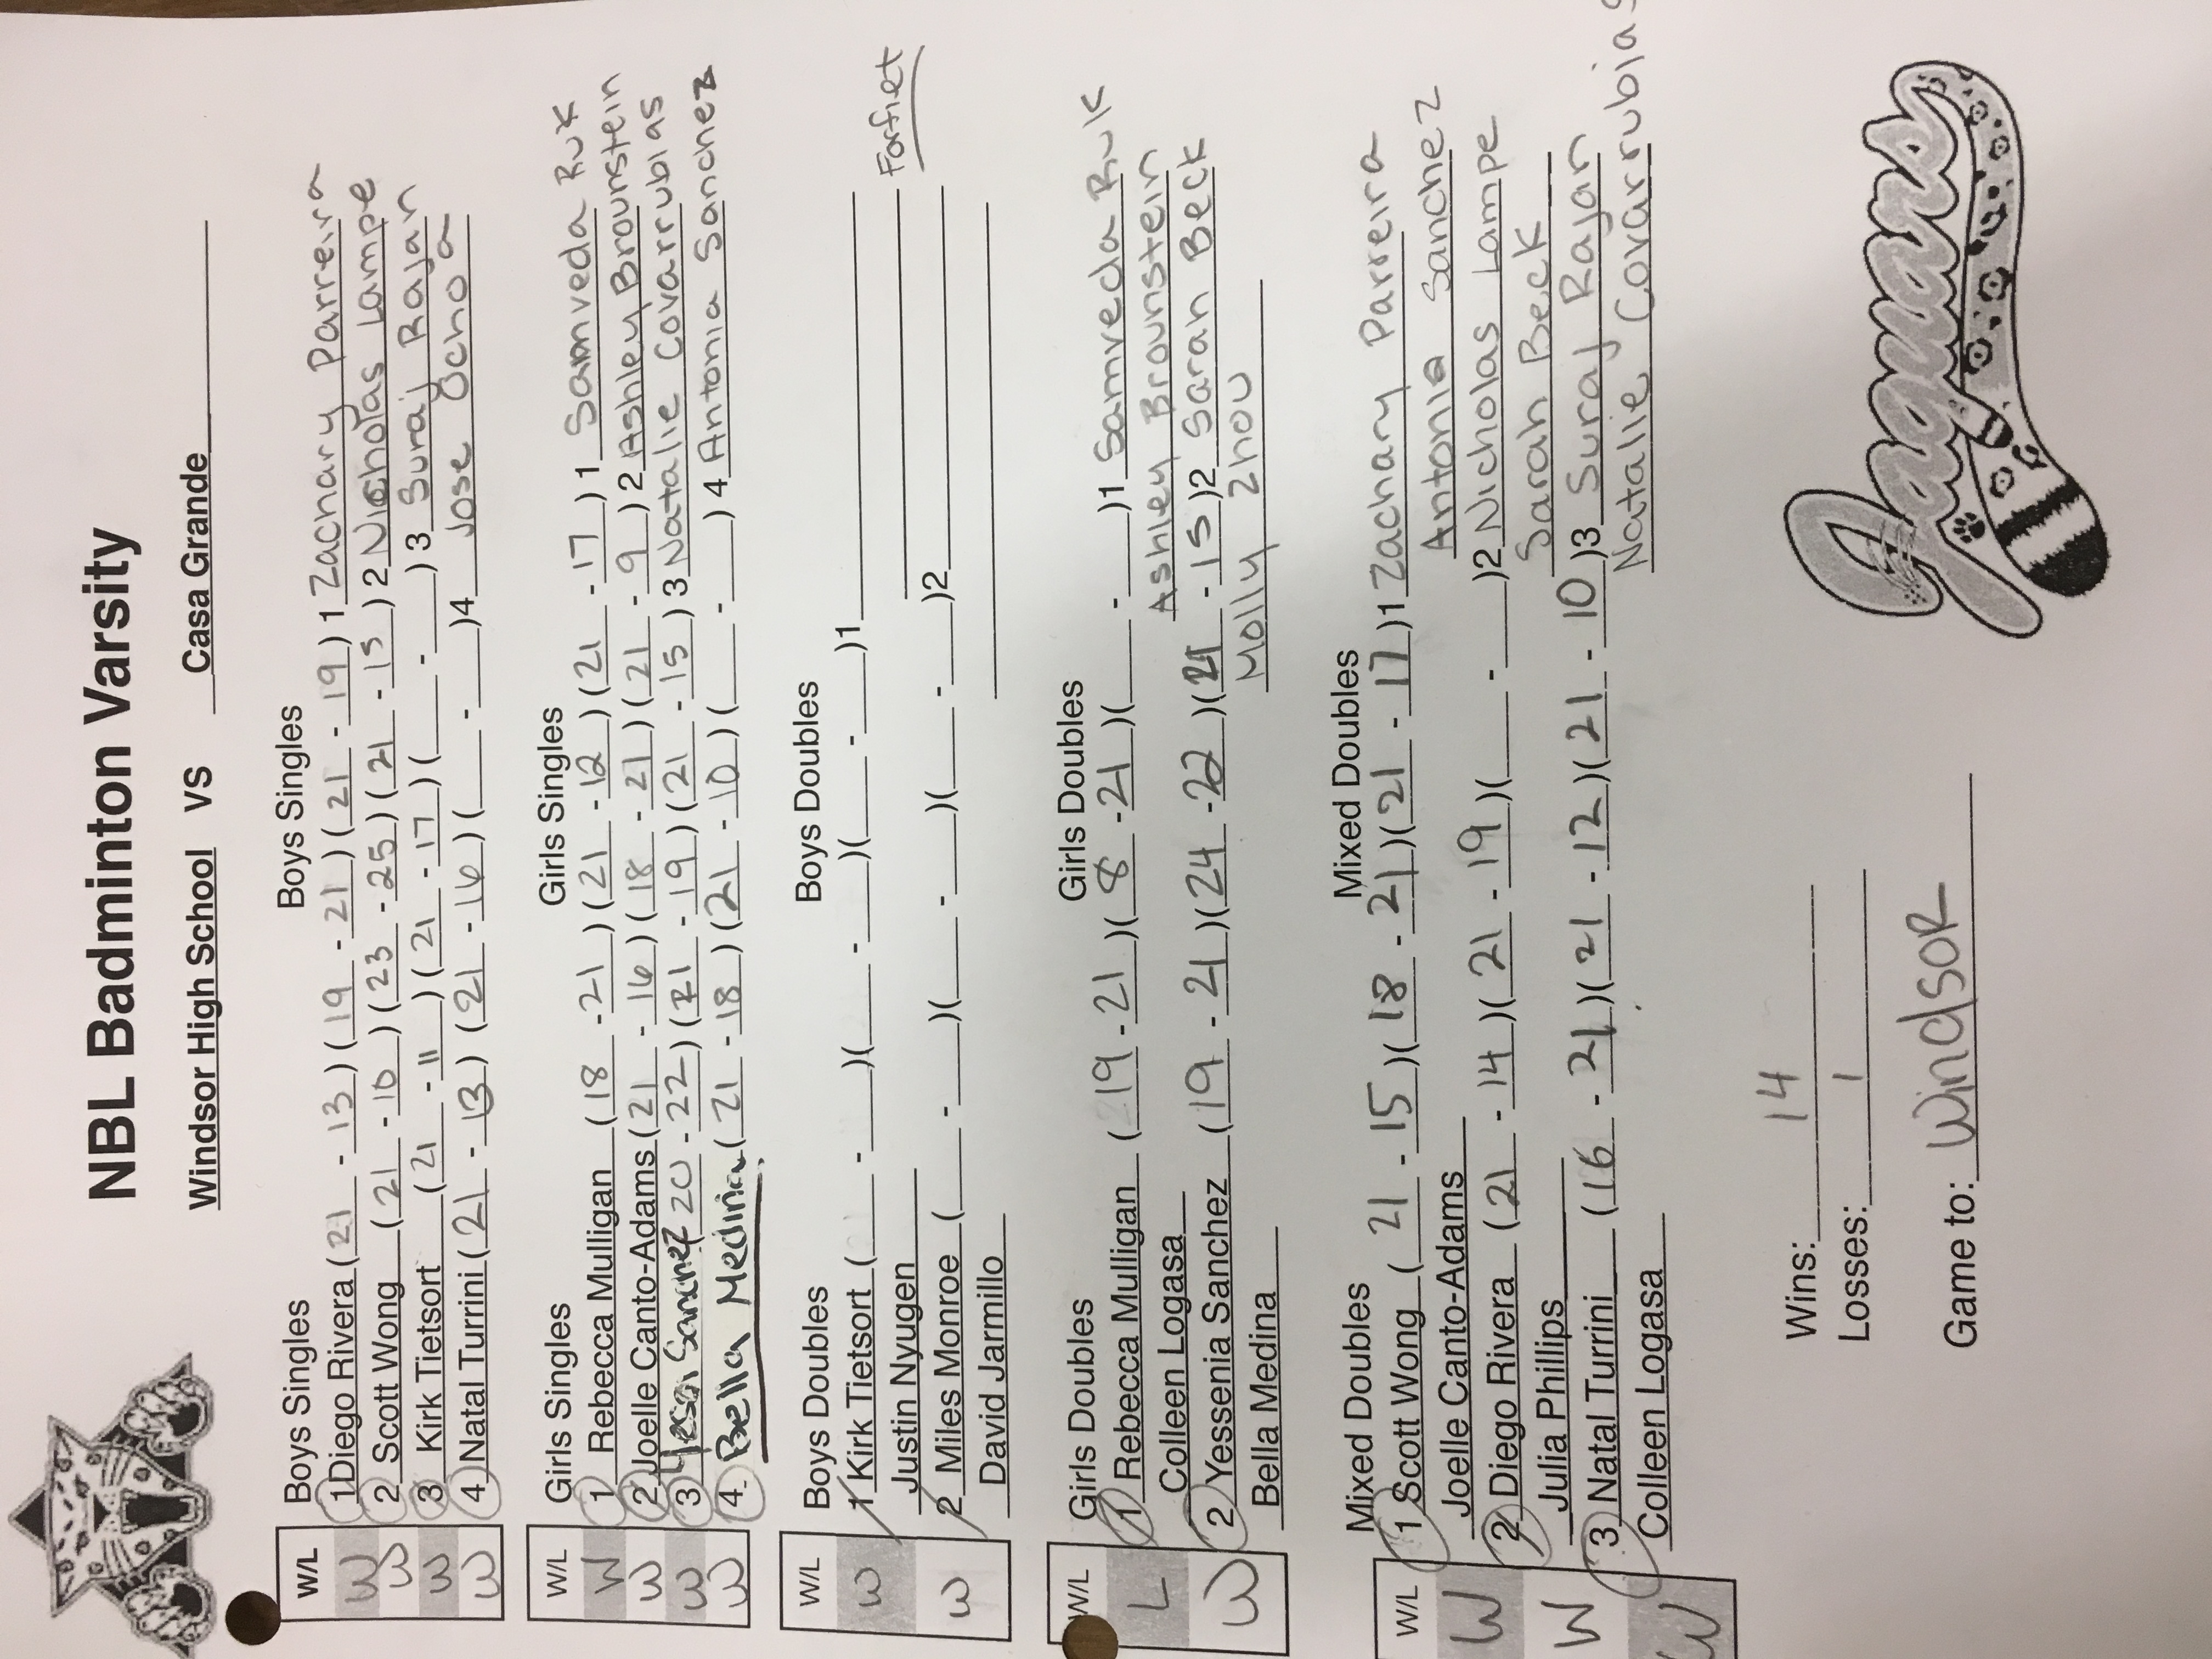 NBL Badminton Varsity
Windsor High School VS Casa Grande
W/L Boys Singles Boys Singles
W 1 Diego Rivera (21 - 13) (19 - 21) (21 - 19) 1 Zachary Parreira
W 2 Scott Wong (21 - 10) (23 - 25) (21 - 15) 2 Nicholas Lampe
W 3 Kirk Tietsort (21 - 11) (21 - 17) ( - ) 3 Suraj Rajan
W 4 Natal Turrini (21 - 13) (21 - 16) ( - ) 4 Jose Ochoa
W/L Girls Singles Girls Singles
W 1 Rebecca Mulligan (18 - 21) (21 - 12) (21 - 17) 1 Samveda Ruk
W 2 Joelle Canto-Adams (21 - 16) (18 - 21) (21 - 9) 2 Ashley Brounstein
W 3 Yessi Sanchez 20 - 22) (21 - 19) (21 - 15) 3 Natalie Covarrubias
W 4 Bella Medina (21 - 18) (21 - 10) ( - ) 4 Antonia Sanchez
W/L Boys Doubles Boys Doubles
W 1 Kirk Tietsort ( - )( - )( - )1
Justin Nyugen Forfiet
W 2 Miles Monroe ( - )( - )( - )2
David Jarmillo
W/L Girls Doubles Girls Doubles
L 1 Rebecca Mulligan (19 - 21)(8 - 21)( - )1 Samveda Rulk
Colleen Logasa Ashley Brounstein
W 2 Yessenia Sanchez (19 - 21)(24 - 22)(21 - 15)2 Sarah Beck
Bella Medina Molly Zhou
W/L Mixed Doubles Mixed Doubles
W 1 Scott Wong (21 - 15)(18 - 21)(21 - 17)1 Zachary Parreira
Joelle Canto-Adams Antonia Sanchez
W 2 Diego Rivera (21 - 14)(21 - 19)( - )2 Nicholas Lampe
Julia Phillips Sarah Beck
W 3 Natal Turrini (16 - 21)(21 - 12)(21 - 10)3 Suraj Rajan
Colleen Logasa Natalie Covarrubias
Wins: 14
Losses: 1
Game to: Windsor
Jaguars